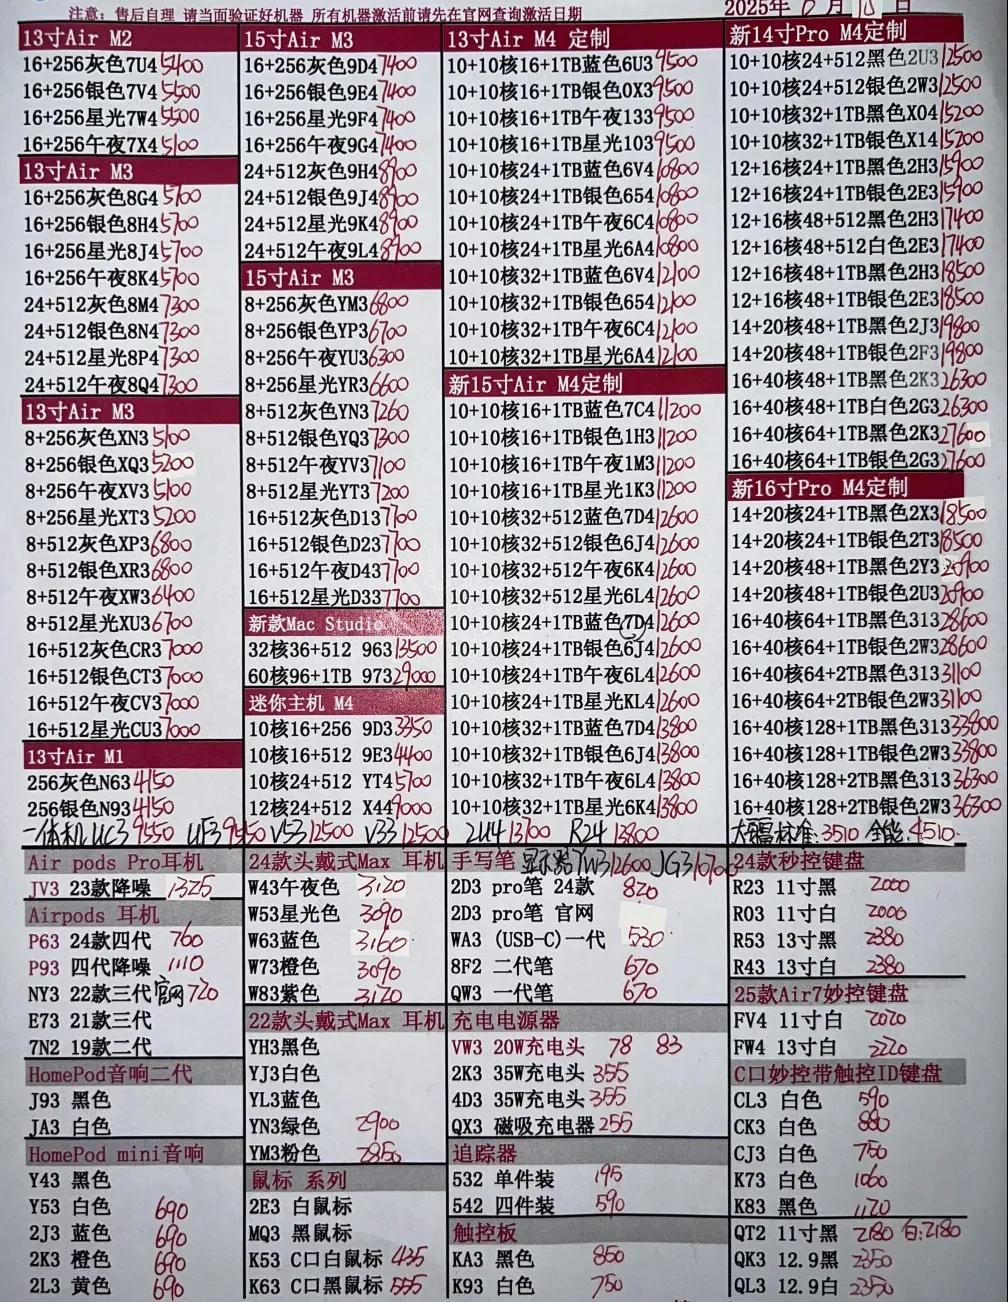 注意：售后自理 请当面验证好机器 所有机器激活前请先在官网查询激活日期
2025年 月 日
13寸Air M2
16+256灰色7U4 5400
16+256银色7V4 5500
16+256星光7W4 5500
16+256午夜7X4 5100
13寸Air M3
16+256灰色8G4 5700
16+256银色8H4 5700
16+256星光8J4 5700
16+256午夜8K4 5700
24+512灰色8M4 7300
24+512银色8N4 7300
24+512星光8P4 7300
24+512午夜8Q4 7300
13寸Air M3
8+256灰色XN3 5100
8+256银色XQ3 5200
8+256午夜XV3 5100
8+256星光XT3 5200
8+512灰色XP3 6800
8+512银色XR3 6800
8+512午夜XW3 6400
8+512星光XU3 6700
16+512灰色CR3 7000
16+512银色CT3 7000
16+512午夜CV3 7000
16+512星光CU3 7000
13寸Air M1
256灰色N63 4150
256银色N93 4150
15寸Air M3
16+256灰色9D4 7400
16+256银色9E4 7400
16+256星光9F4 7400
16+256午夜9G4 7400
24+512灰色9H4 8900
24+512银色9J4 8900
24+512星光9K4 8900
24+512午夜9L4 8900
15寸Air M3
8+256灰色YM3 6800
8+256银色YP3 6700
8+256午夜YU3 6300
8+256星光YR3 6600
8+512灰色YN3 7260
8+512银色YQ3 7300
8+512午夜YV3 7100
8+512星光YT3 7200
16+512灰色D13 7700
16+512银色D23 7700
16+512午夜D43 7700
16+512星光D33 7700
新款Mac Studio
32核36+512 963 13500
60核96+1TB 973 29000
迷你主机 M4
10核16+256 9D3 3350
10核16+512 9E3 4400
10核24+512 YT4 5700
12核24+512 X44 9000
13寸Air M4 定制
10+10核16+1TB蓝色6U3 9500
10+10核16+1TB银色0X3 9500
10+10核16+1TB午夜133 9500
10+10核16+1TB星光103 9500
10+10核24+1TB蓝色6V4 10800
10+10核24+1TB银色654 10800
10+10核24+1TB午夜6C4 10800
10+10核24+1TB星光6A4 10800
10+10核32+1TB蓝色6V4 12100
10+10核32+1TB银色654 12100
10+10核32+1TB午夜6C4 12100
10+10核32+1TB星光6A4 12100
新15寸Air M4定制
10+10核16+1TB蓝色7C4 11200
10+10核16+1TB银色1H3 11200
10+10核16+1TB午夜1M3 11200
10+10核16+1TB星光1K3 11200
10+10核32+512蓝色7D4 12600
10+10核32+512银色6J4 12600
10+10核32+512午夜6K4 12600
10+10核32+512星光6L4 12600
10+10核24+1TB蓝色7D4 12600
10+10核24+1TB银色6J4 12600
10+10核24+1TB午夜6L4 12600
10+10核24+1TB星光KL4 12600
10+10核32+1TB蓝色7D4 13800
10+10核32+1TB银色6J4 13800
10+10核32+1TB午夜6L4 13800
10+10核32+1TB星光6K4 13800
新14寸Pro M4定制
10+10核24+512黑色2U3 12500
10+10核24+512银色2W3 12500
10+10核32+1TB黑色X04 15200
10+10核32+1TB银色X14 15200
12+16核24+1TB黑色2H3 15900
12+16核24+1TB银色2E3 15900
12+16核48+512黑色2H3 17400
12+16核48+512白色2E3 17400
12+16核48+1TB黑色2H3 18500
12+16核48+1TB银色2E3 18500
14+20核48+1TB黑色2J3 19800
14+20核48+1TB银色2F3 19800
16+40核48+1TB黑色2K3 26300
16+40核48+1TB白色2G3 26300
16+40核64+1TB黑色2K3 27600
16+40核64+1TB银色2G3 27600
新16寸Pro M4定制
14+20核24+1TB黑色2X3 18500
14+20核24+1TB银色2T3 18500
14+20核48+1TB黑色2Y3 20900
14+20核48+1TB银色2U3 20900
16+40核64+1TB黑色313 28600
16+40核64+1TB银色2W3 28600
16+40核64+2TB黑色313 31100
16+40核64+2TB银色2W3 31100
16+40核128+1TB黑色313 33800
16+40核128+1TB银色2W3 33800
16+40核128+2TB黑色313 36300
16+40核128+2TB银色2W3 36300
一体机 UC3 9550 UF3 9550 V53 12500 V33 12500 2U4 13700 R24 13800 标准:3510 全能:4510
Air pods Pro耳机
JV3 23款降噪 1325
Airpods 耳机
P63 24款四代 760
P93 四代降噪 1110
NY3 22款三代 官网 720
E73 21款三代
7N2 19款二代
HomePod音响二代
J93 黑色
JA3 白色
HomePod mini音响
Y43 黑色
Y53 白色 690
2J3 蓝色 690
2K3 橙色 690
2L3 黄色 690
24款头戴式Max 耳机
W43午夜色 3120
W53星光色 3090
W63蓝色 3160
W73橙色 3090
W83紫色 3120
22款头戴式Max 耳机
YH3黑色
YJ3白色
YL3蓝色
YN3绿色 2900
YM3粉色 2850
鼠标 系列
2E3 白鼠标
MQ3 黑鼠标
K53 C口白鼠标 435
K63 C口黑鼠标 555
手写笔 显示器 TW3 12600 JG3 10700
2D3 pro笔 24款 820
2D3 pro笔 官网
WA3 (USB-C)一代 530
8F2 二代笔 670
QW3 一代笔 670
充电电源器
VW3 20W充电头 78 83
2K3 35W充电头 355
4D3 35W充电头 355
QX3 磁吸充电器 255
追踪器
532 单件装 195
542 四件装 590
触控板
KA3 黑色 850
K93 白色 750
24款秒控键盘
R23 11寸黑 2000
R03 11寸白 2000
R53 13寸黑 2380
R43 13寸白 2380
25款Air7妙控键盘
FV4 11寸白 2020
FW4 13寸白 2220
C口妙控带触控ID键盘
CL3 白色 590
CK3 白色 880
CJ3 白色 750
K73 白色 1060
K83 黑色 1170
QT2 11寸黑 2180 白:2180
QK3 12.9黑 2350
QL3 12.9白 2350